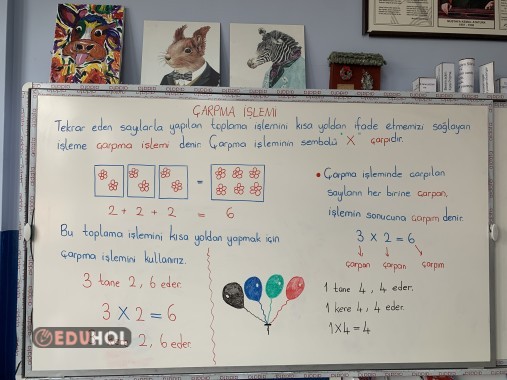 ÇARPMA İŞLEMİ
Tekrar eden sayılarla yapılan toplama işlemini kısa yoldan ifade etmemizi sağlayan
işleme çarpma işlemi denir. Çarpma işleminin sembolü "X" çarpıdır.
=
2 + 2 + 2 = 6
Bu toplama işlemini kısa yoldan yapmak için
çarpma işlemini kullanırız.
3 tane 2, 6 eder.
3 X 2 = 6
2, 6 eder.
EDUHOL
• Çarpma işleminde çarpılan
sayıların her birine çarpan,
işlemin sonucuna çarpım denir.
3 x 2 = 6
çarpan çarpan çarpım
1 tane 4, 4 eder.
1 kere 4, 4 eder.
1x4 = 4